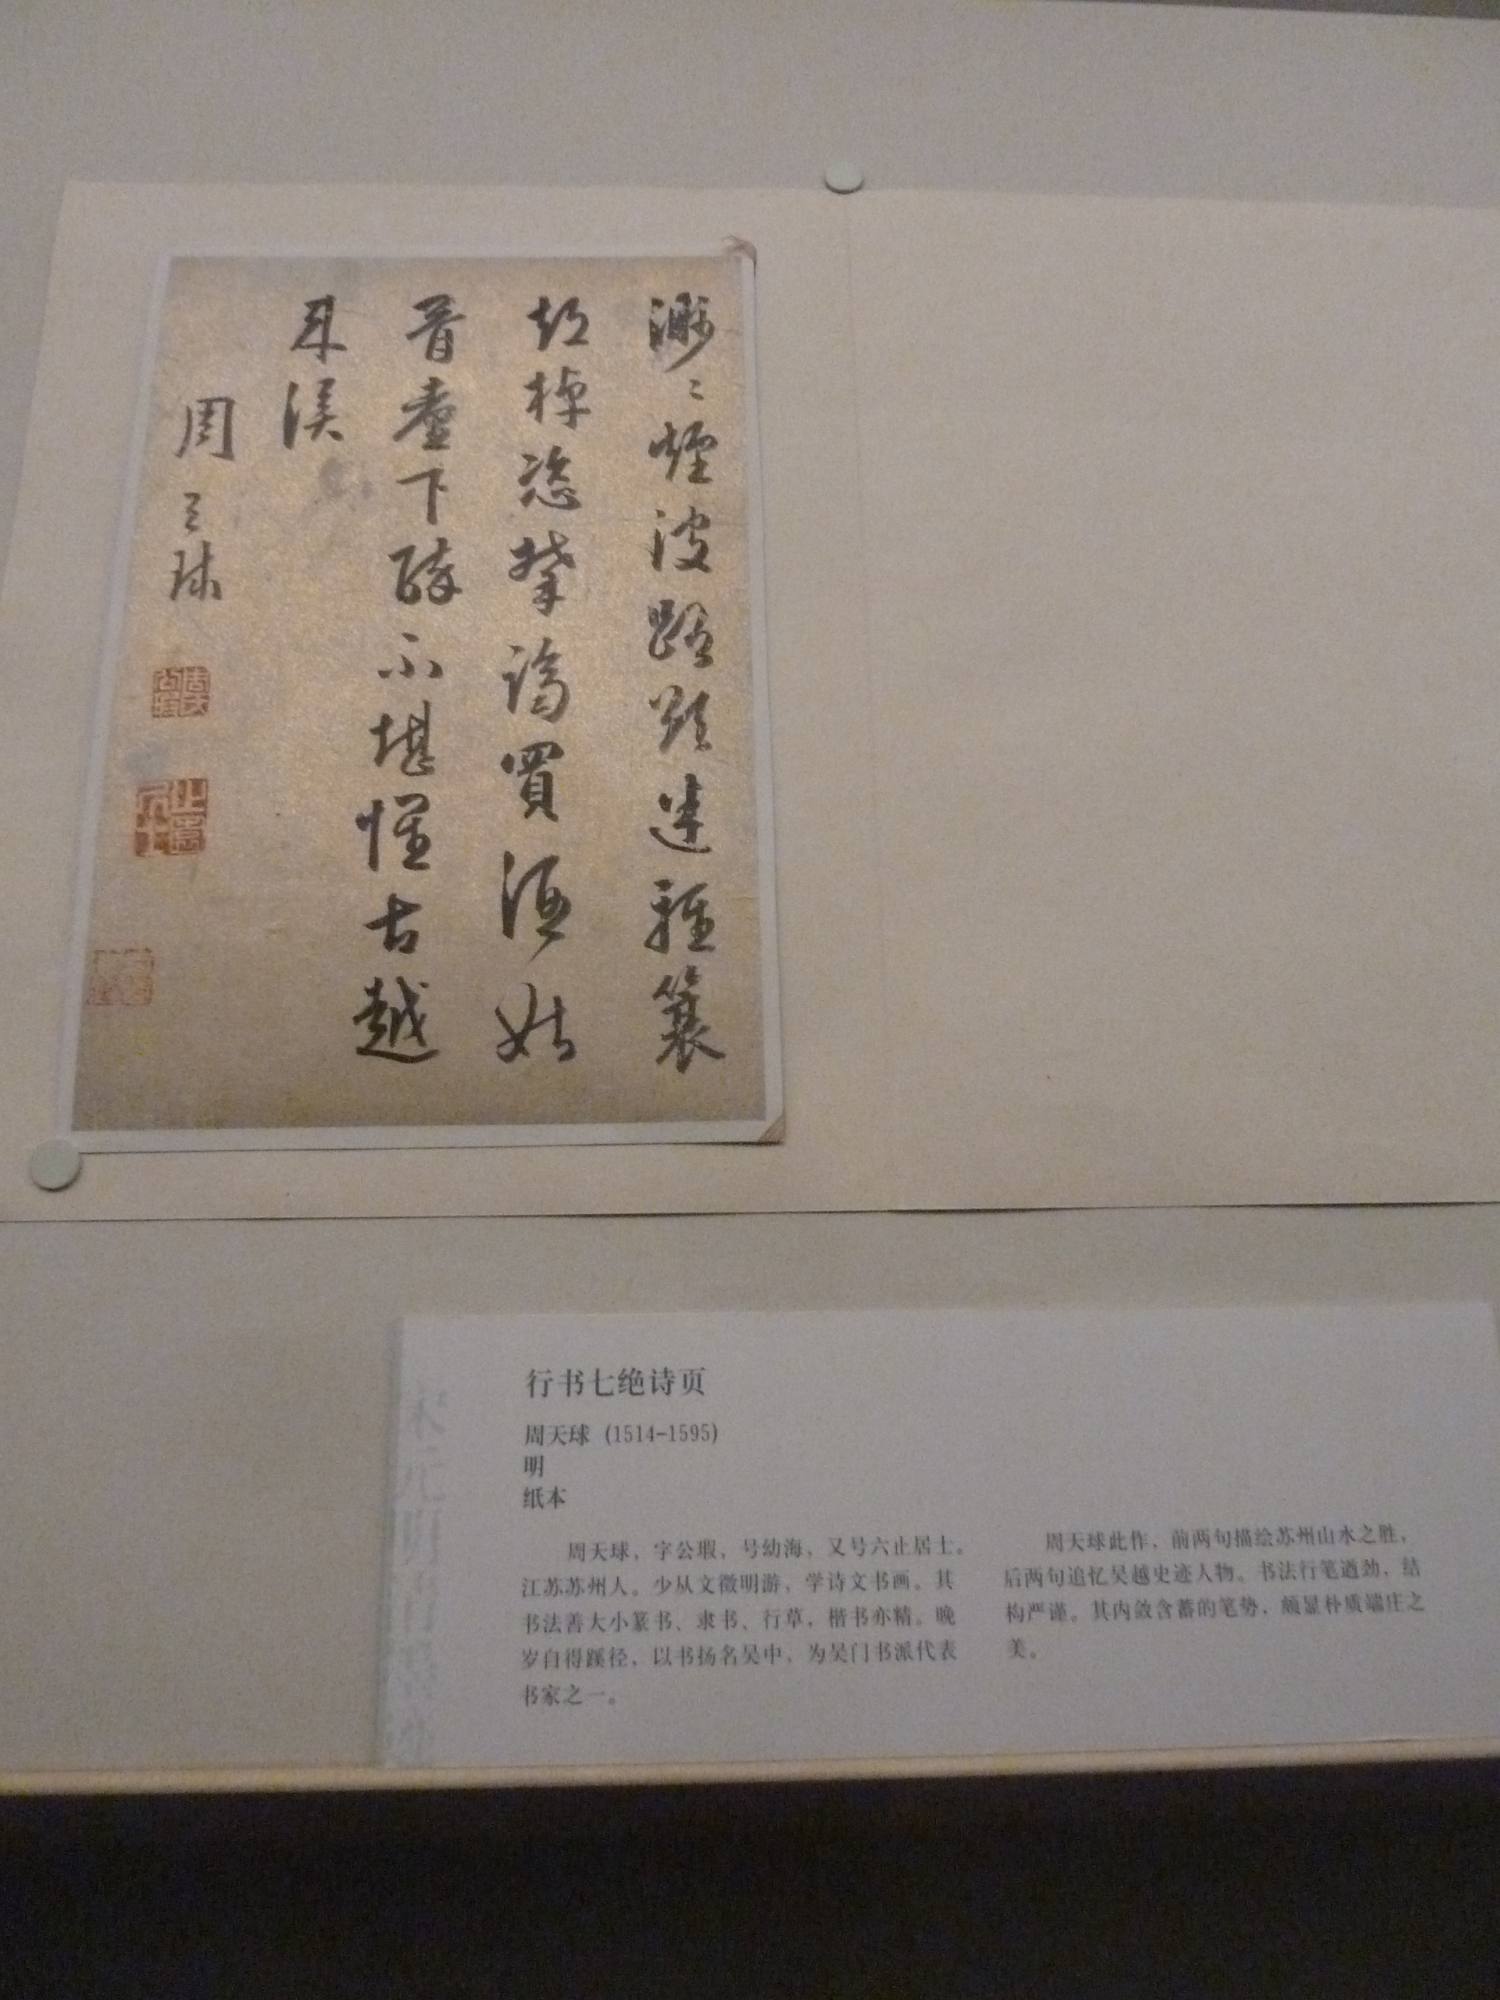 渺〻煙波路迷輕簑
短棹恣攀躋買酒姑
胥臺下醉不堪懷古越
來溪
周天球
行书七绝诗页
周天球 (1514-1595)
明
纸本
周天球，字公瑕，号幼海，又号六止居士。
江苏苏州人。少从文徵明游，学诗文书画。其
书法善大小篆书、隶书、行草，楷书亦精。晚
岁自得蹊径，以书扬名吴中，为吴门书派代表
书家之一。
周天球此作，前两句描绘苏州山水之胜，
后两句追忆吴越史迹人物。书法行笔遒劲，结
构严谨。其内敛含蓄的笔势，颇显朴质端庄之
美。